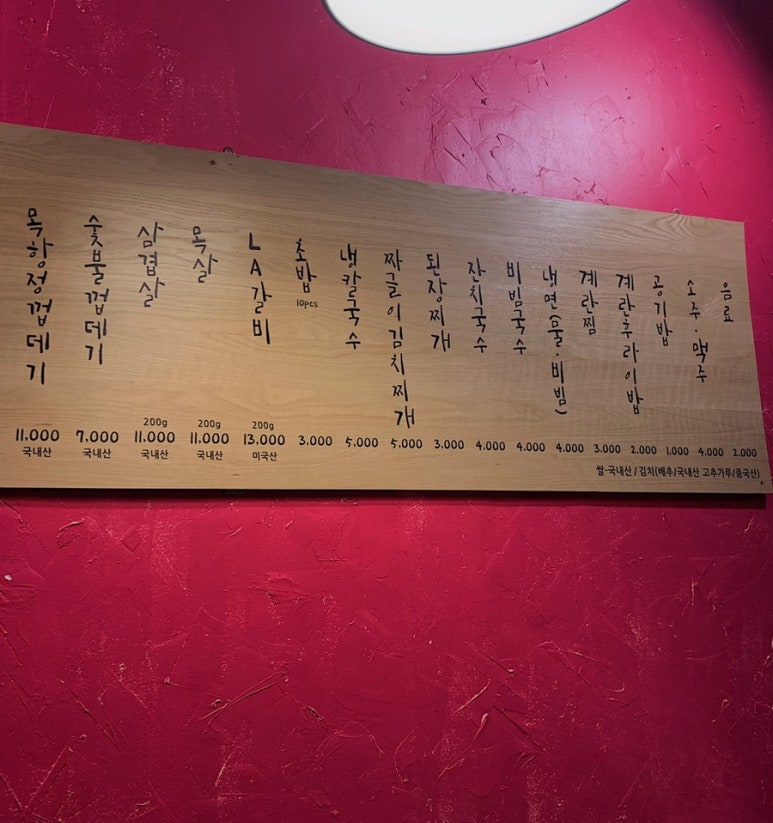 목항정껍데기
11,000
국내산
숯불껍데기
7,000
국내산
삼겹살
200g
11,000
국내산
목살
200g
11,000
국내산
LA갈비
200g
13,000
미국산
초밥
10pcs
3,000
냉칼국수
5,000
짜글이김치찌개
5,000
된장찌개
3,000
잔치국수
4,000
비빔국수
4,000
냉면(물·비빔)
4,000
계란찜
3,000
계란후라이밥
2,000
공기밥
1,000
소주·맥주
4,000
음료
2,000
쌀-국내산 / 김치(배추/국내산 고추가루/중국산)